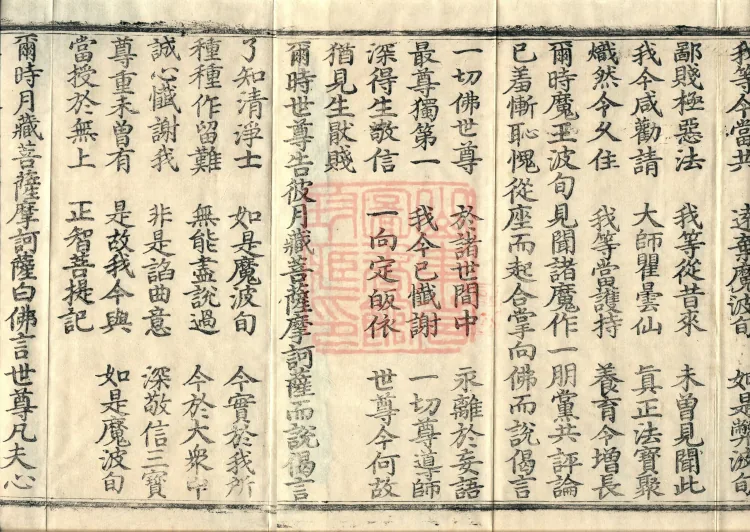 我等今當共 遠棄魔波旬 如是弊波旬
鄙賤極惡法 我等從昔來 未曾見聞此
我今咸勸請 大師瞿曇仙 眞正法寶聚
熾然令久住 我等當護持 養育令增長
爾時魔王波旬見聞諸魔作一朋黨共評論
已羞慚恥愧從座而起合掌向佛而說偈言
一切佛世尊 於諸世間中 永離於妄語
最尊獨第一 我今已懺謝 一切尊導師
深得生敬信 一向定皈依 世尊今何故
猶見生猒賤
爾時世尊告彼月藏菩薩摩訶薩而說偈言
了知清淨士 如是魔波旬 今實於我所
種種作留難 無能盡說過 今於大衆中
誠心懺謝我 非是諂曲意 深敬信三寶
尊重未曾有 是故我今與 如是魔波旬
當授於無上 正智菩提記
爾時月藏菩薩摩訶薩白佛言世尊凡夫心